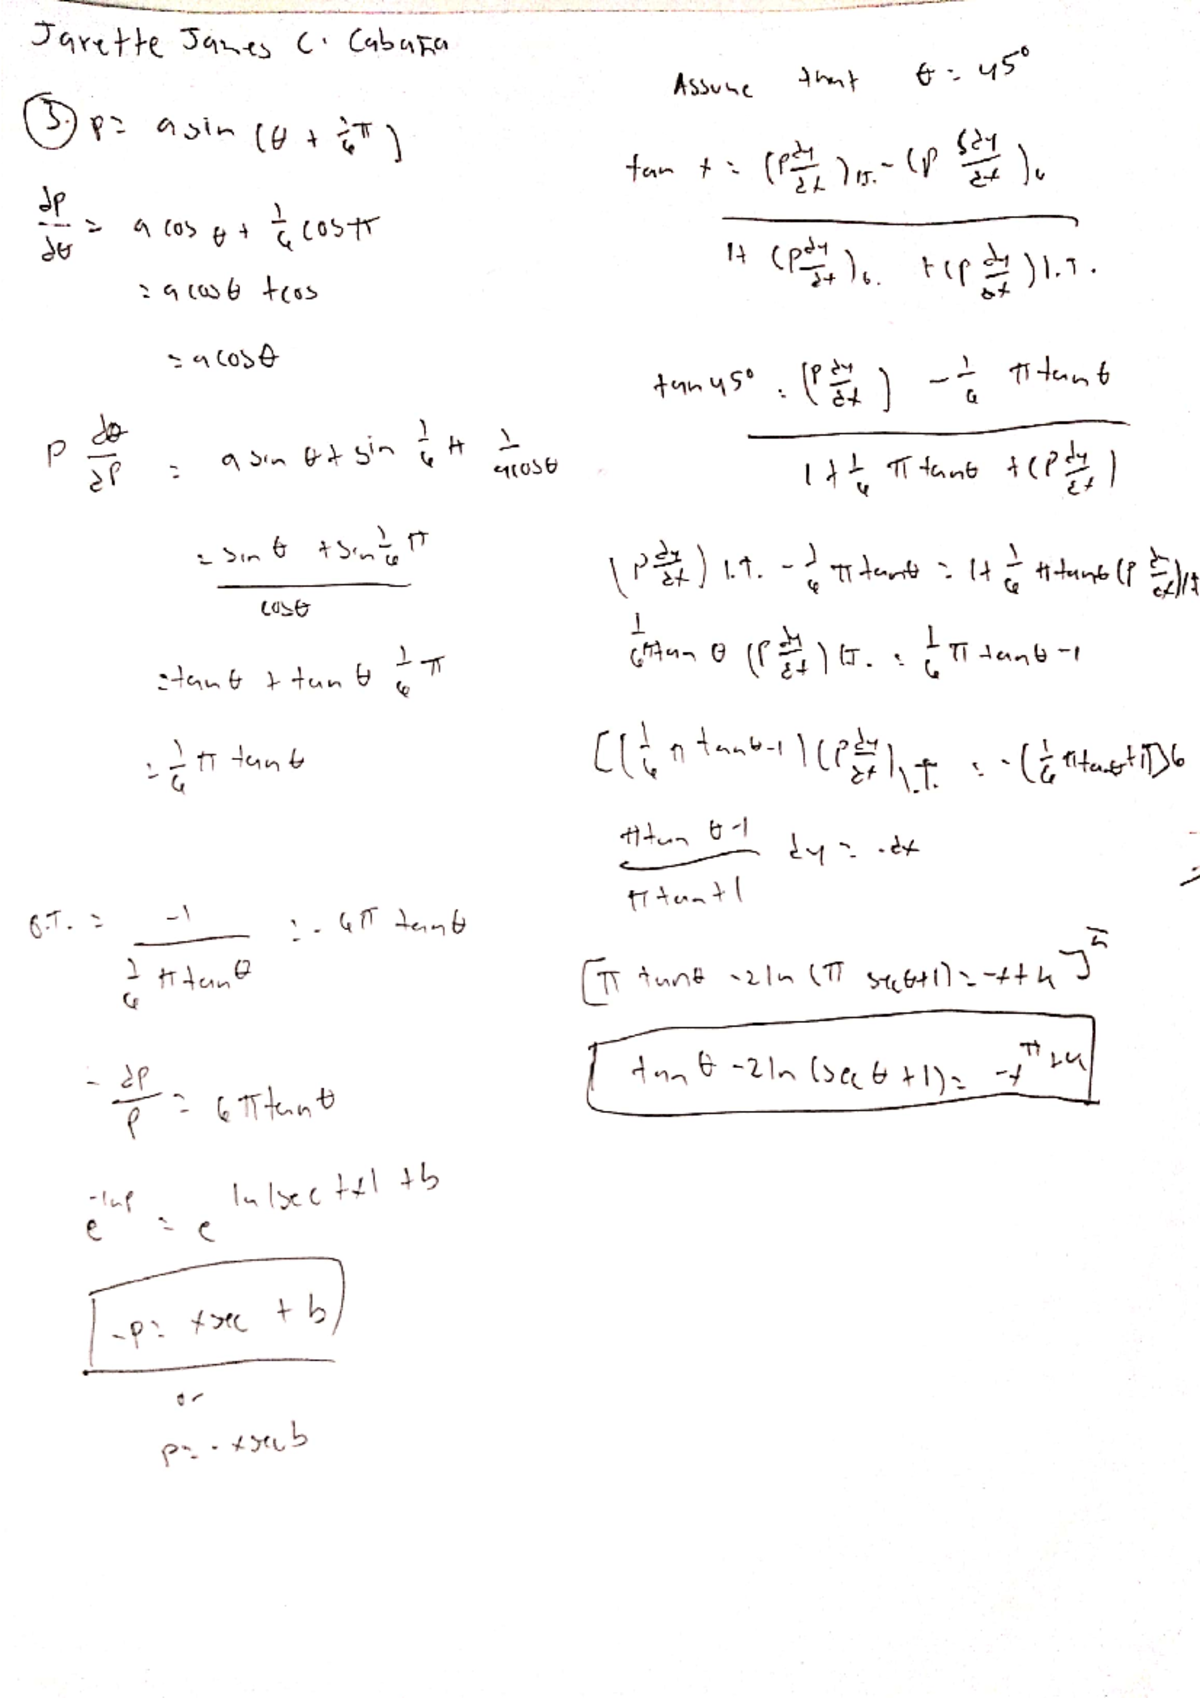 Jarette James C. Cabaña
3. p = a sin (θ + 1/6 π)
dp/dθ = a cos θ + 1/6 cos π
= a cos θ + cos
= a cos θ
p dθ/dp = a sin θ + sin 1/6 π 1/(a cos θ)
= (sin θ + sin 1/6 π)/cos θ
= tan θ + tan θ 1/6 π
= 1/6 π tan θ
O.T. = -1/(1/6 π tan θ) = - 6π tan θ
- dp/p = 6π tan θ
e^(-ln p) = e^(ln |sec + x| + b)
-p = x sec + b
or
p = - x sec b
Assume that θ = 45°
tan
tan 45° = ((p dy/dx) - 1/6 π tan θ)/(1 + 1/6 π tan θ + (p dy/dx))
(p dy/dx) I.T. - 1/6 π tan θ = 1 + 1/6 π tan θ (p
1/6 π tan θ (p dy/dx) I.T. = 1/6 π tan θ - 1
[(1/6 π tan θ - 1) (p dy/dx) I.T. = - (1/6 π tan θ + 1)] 6
(π tan θ - 1)/(π tan + 1) dy = - dx
[π tan θ - 2 ln (π sec θ + 1) = -x + k]
tan θ - 2 ln (sec θ + 1) = -x^π + k